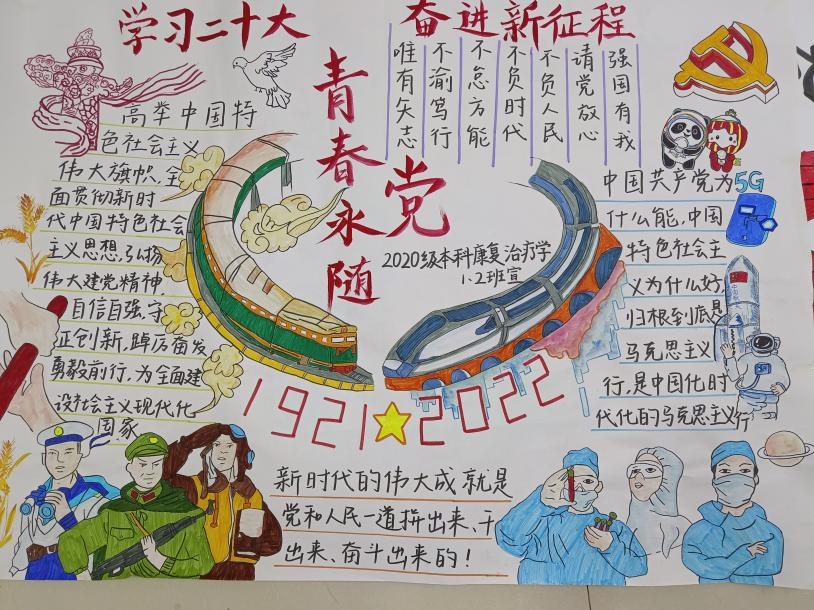 学习二十大
奋进新征程
青春永随
党
唯有矢志
不渝笃行
不怠方能
不负时代
不负人民
请党放心
强国有我
高举中国特
色社会主义
伟大旗帜，全
面贯彻新时
代中国特色社会
主义思想，弘扬
伟大建党精神
自信自强、守
正创新，踔厉奋发
勇毅前行，为全面建
设社会主义现代化
国家
2020级本科康复治疗学
1、2班宣
中国共产党为5G
什么能，中国
特色社会主
义为什么好，
归根到底是
马克思主义
行，是中国化时
代化的马克思主义行
1921★2022
新时代的伟大成就是
党和人民一道拼出来、干
出来、奋斗出来的！